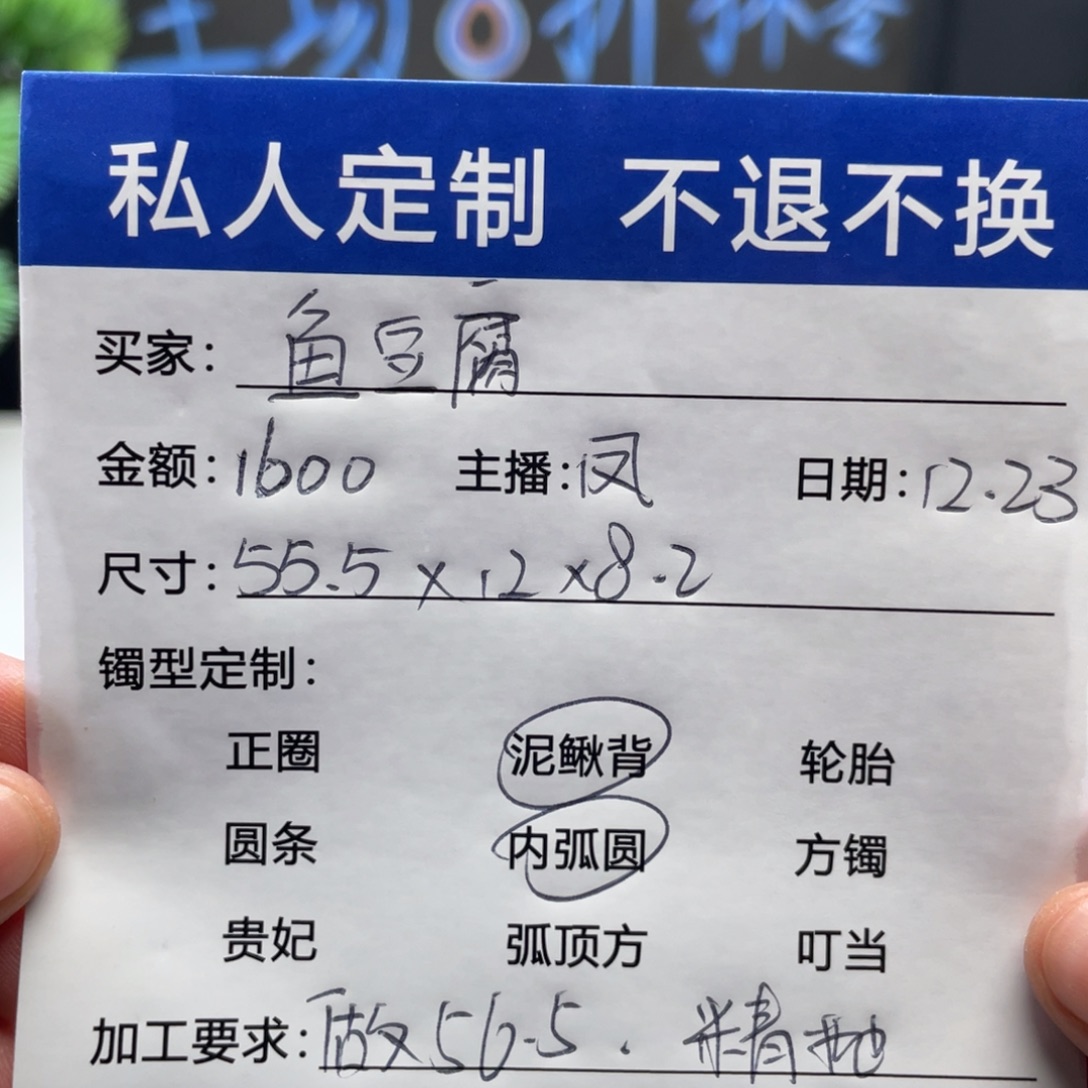 私人定制 不退不换
买家：鱼豆腐
金额：1600 主播：凤 日期：12.23
尺寸：55.5×12×8.2
镯型定制：
正圈 泥鳅背 轮胎
圆条 内弧圆 方镯
贵妃 弧顶方 叮当
加工要求：做56.5. 精抛